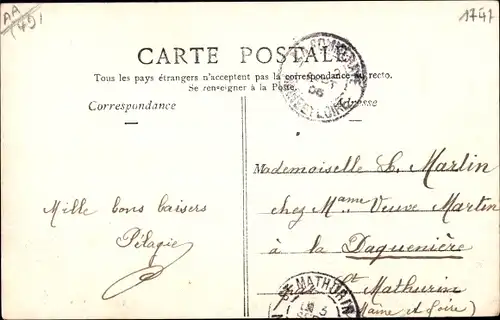 AA
(49)
1747
CARTE POSTALE
Tous les pays étrangers n'acceptent pas la correspondance au recto.
Se renseigner à la Poste.
Correspondance
Adresse
MAINE ET LOIRE
06
Mademoiselle L. Martin
chez Mame Veuve Martin
à la Daguenière
par St Mathurin
(Maine et Loire)
Mille bons baisers
Pélagie
ST MATHURIN